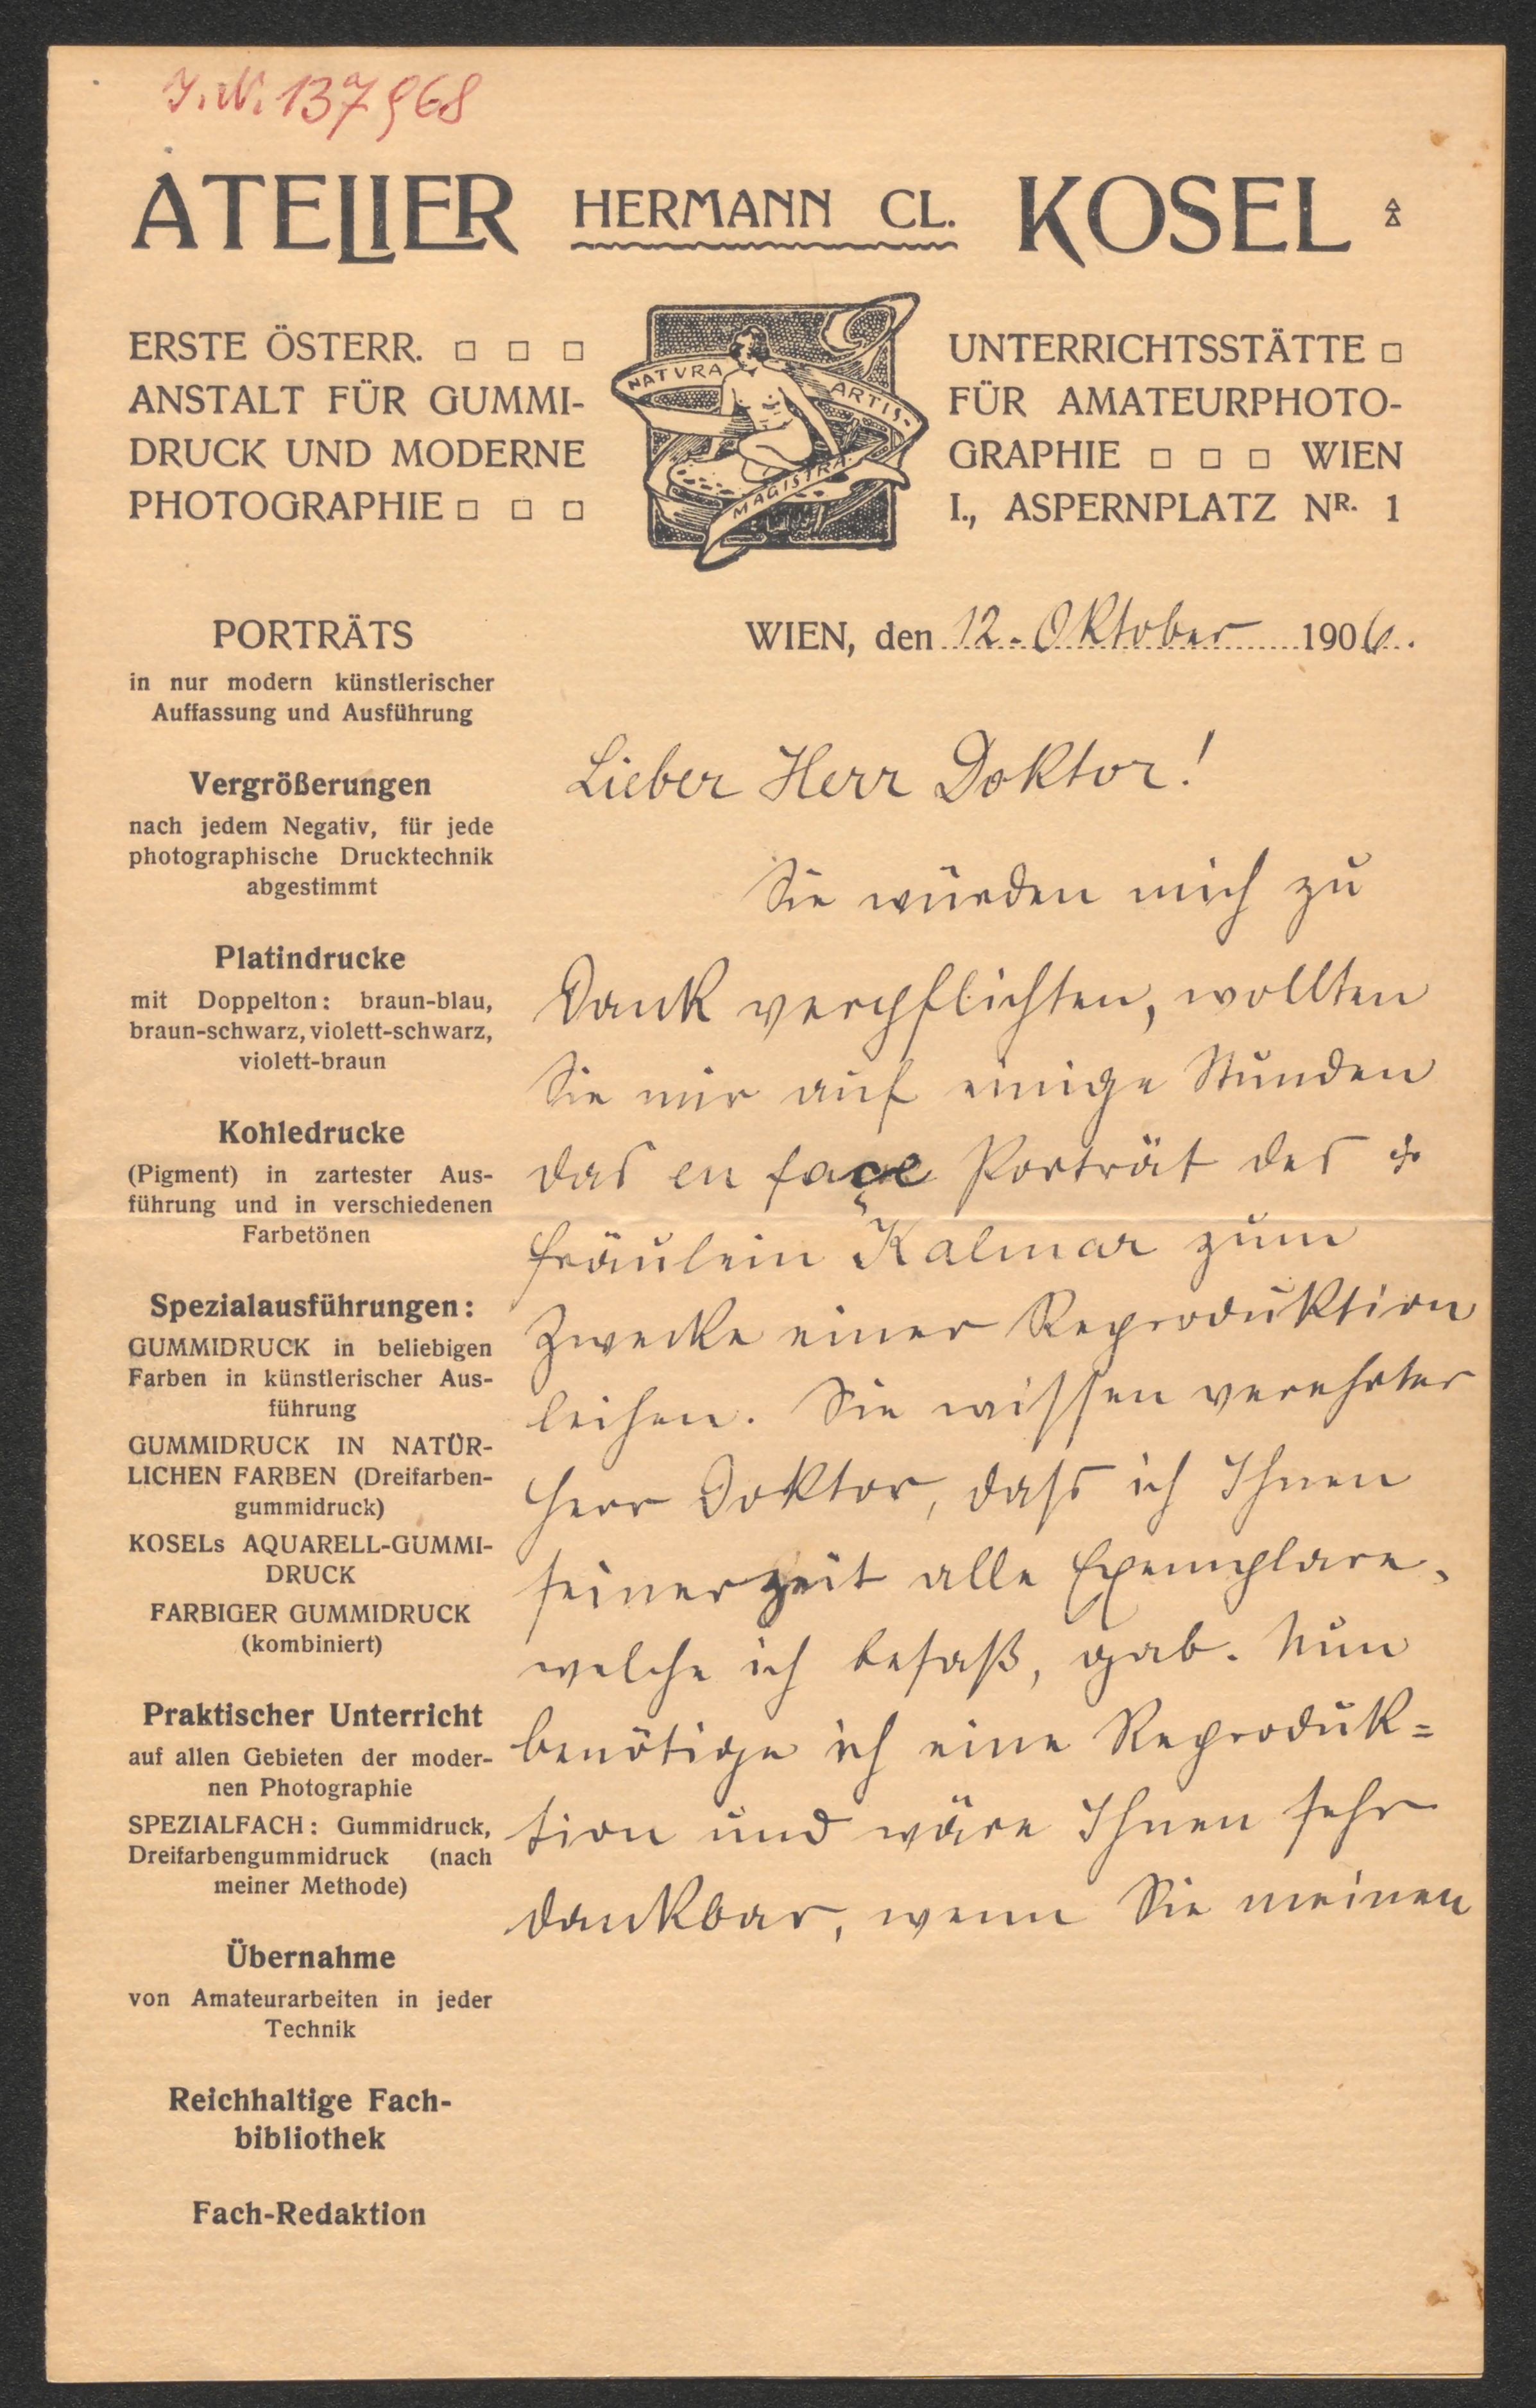 I. N. 137968
ATELIER HERMANN CL. KOSEL
ERSTE ÖSTERR.
ANSTALT FÜR GUMMI-
DRUCK UND MODERNE
PHOTOGRAPHIE
NATVRA
ARTIS
MAGISTRA
UNTERRICHTSSTÄTTE
FÜR AMATEURPHOTO-
GRAPHIE WIEN
I., ASPERNPLATZ NR. 1
PORTRÄTS
in nur modern künstlerischer
Auffassung und Ausführung
Vergrößerungen
nach jedem Negativ, für jede
photographische Drucktechnik
abgestimmt
Platindrucke
mit Doppelton: braun-blau,
braun-schwarz, violett-schwarz,
violett-braun
Kohledrucke
(Pigment) in zartester Aus-
führung und in verschiedenen
Farbetönen
Spezialausführungen:
GUMMIDRUCK in beliebigen
Farben in künstlerischer Aus-
führung
GUMMIDRUCK IN NATÜR-
LICHEN FARBEN (Dreifarben-
gummidruck)
KOSELs AQUARELL-GUMMI-
DRUCK
FARBIGER GUMMIDRUCK
(kombiniert)
Praktischer Unterricht
auf allen Gebieten der moder-
nen Photographie
SPEZIALFACH: Gummidruck,
Dreifarbengummidruck (nach
meiner Methode)
Übernahme
von Amateurarbeiten in jeder
Technik
Reichhaltige Fach-
bibliothek
Fach-Redaktion
WIEN, den 12. Oktober 1906.
Lieber Herr Doktor!
Sie würden mich zu
Dank verpflichten, wollten
Sie mir auf einige Stunden
das en façe Porträt des
Fräulein Kalmar zum
Zwecke einer Reproduktion
leihen. Sie wissen verehrter
Herr Doktor, dass ich Ihnen
seinerzeit alle Exemplare,
welche ich besaß, gab. Nun
benötige ich eine Reproduk=
tion und wäre Ihnen sehr
dankbar, wenn Sie meinen